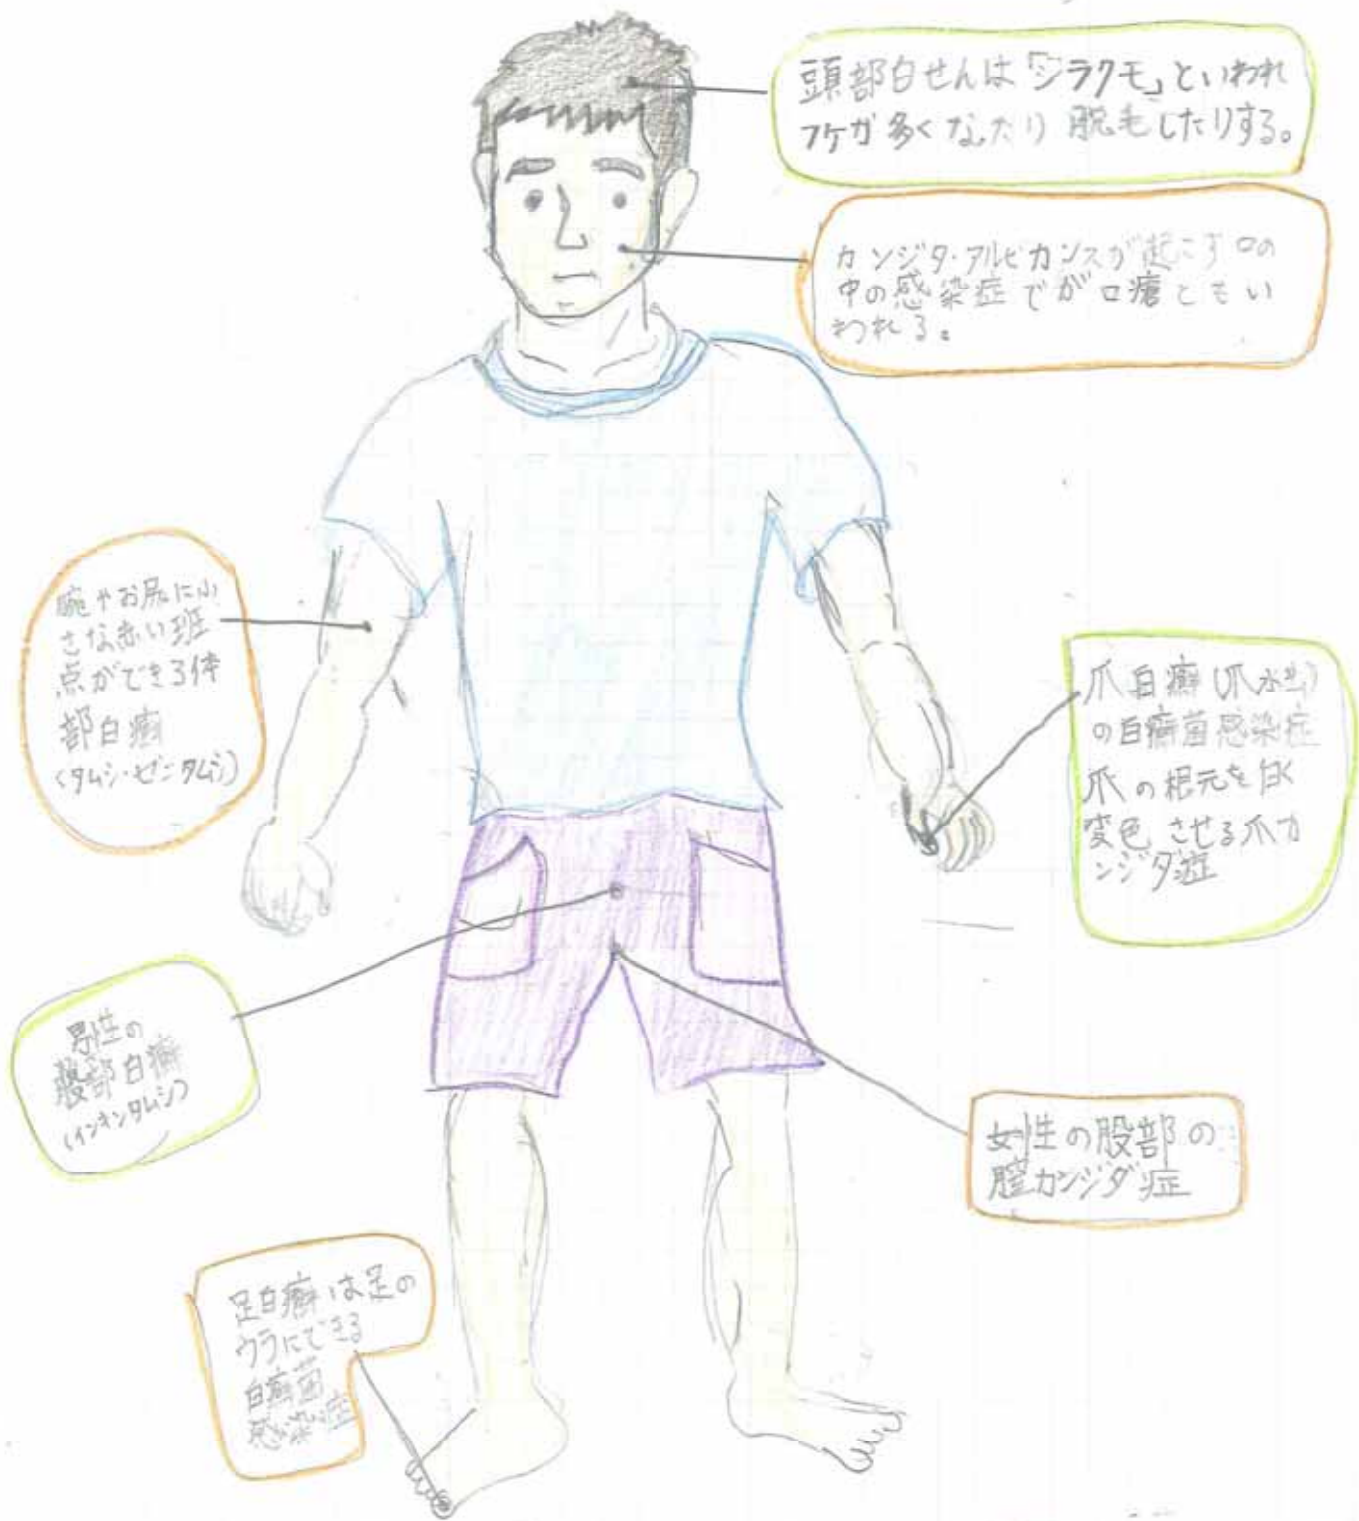 頭部白せんは「シラクモ」といわれ
フケが多くなったり脱毛したりする。
カンジタ・アルビカンスが起こす口の
中の感染症でが口瘡ともい
われる。
腕やお尻に小
さな赤い斑
点ができる体
部白癬
(タムシ・ゼニタムシ)
爪白癬(爪水虫)
の白癬菌感染症
爪の根元を白く
変色させる爪カ
ンジダ症
男性の
股部白癬
(インキンタムシ)
女性の股部の
膣カンジダ症
足白癬は足の
ウラにできる
白癬菌
感染症